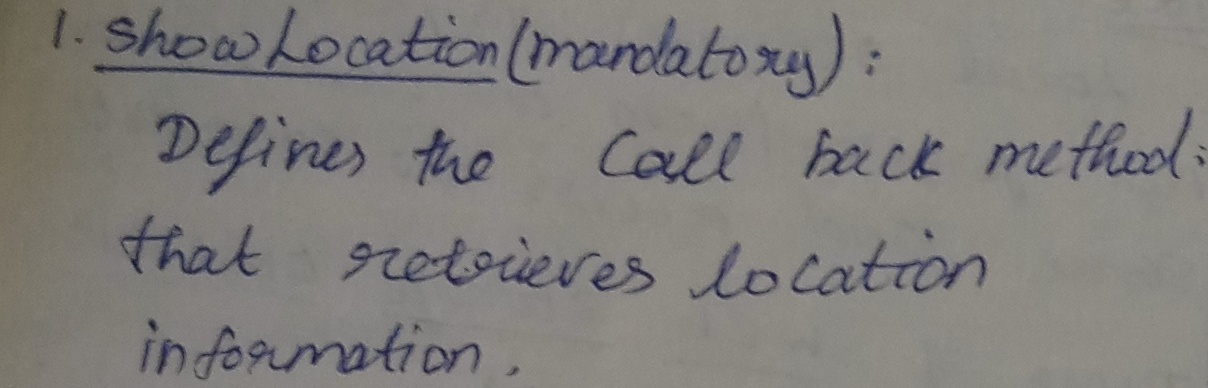 1. showLocation (mandatory) :
Defines the Call back method:
that retrieves location
information.